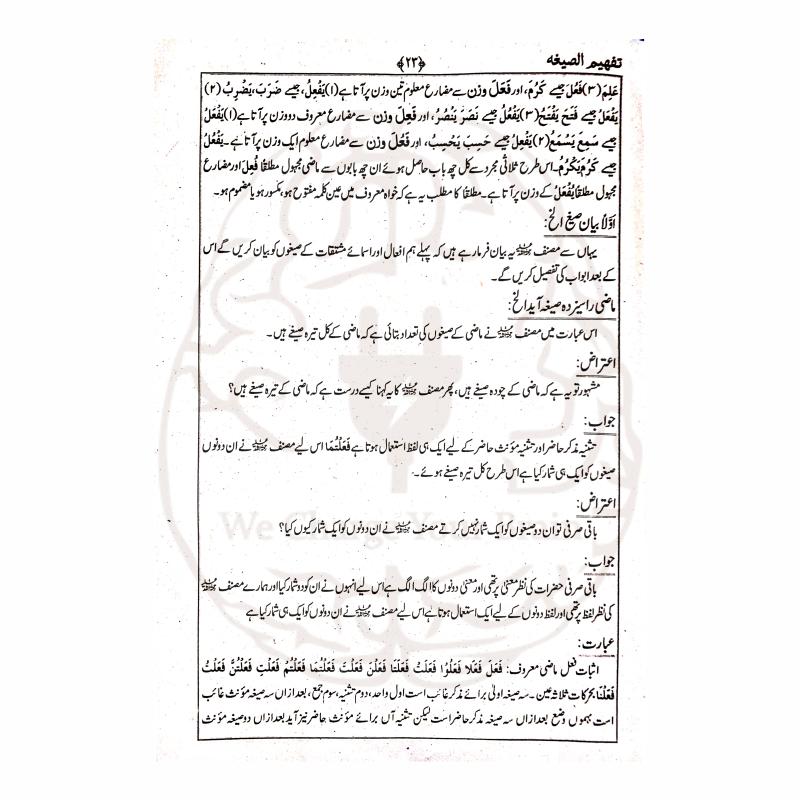 تفہیم الصیغہ
﴿۲۳﴾
عَلِمَ (۳) فَعُلَ جیسے کَرُمَ، اور فَعَلَ وزن سے مضارع معلوم تین وزن پر آتا ہے (۱) یَفْعِلُ، جیسے ضَرَبَ، یَضْرِبُ (۲)
یَفْعَلُ جیسے فَتَحَ یَفْتَحُ (۳) یَفْعُلُ جیسے نَصَرَ یَنْصُرُ، اور فَعِلَ وزن سے مضارع معروف دو وزن پر آتا ہے (۱) یَفْعَلُ
جیسے سَمِعَ یَسْمَعُ (۲) یَفْعِلُ جیسے حَسِبَ یَحْسِبُ، اور فَعُلَ وزن سے مضارع معلوم ایک وزن پر آتا ہے۔ یَفْعُلُ
جیسے کَرُمَ یَکْرُمُ۔ اس طرح ثلاثی مجرد سے کل چھ باب حاصل ہوئے ان چھ بابوں سے ماضی مجہول مطلقا فُعِلَ اور مضارع
مجہول مطلقا یُفْعَلُ کے وزن پر آتا ہے۔ مطلقا کا مطلب یہ ہے کہ خواہ معروف میں عین کلمہ مفتوح ہو، مکسور ہو یا مضموم ہو۔
اوّلاً بیان صیغ الخ:
یہاں سے مصنف ﷫ یہ بیان فرما رہے ہیں کہ پہلے ہم افعال اور اسمائے مشتقات کے صیغوں کو بیان کریں گے اس
کے بعد ابواب کی تفصیل کریں گے۔
ماضی را سیزدہ صیغہ آید الخ:
اس عبارت میں مصنف ﷫ نے ماضی کے صیغوں کی تعداد بتائی ہے کہ ماضی کے کل تیرہ صیغے ہیں۔
اعتراض:
مشہور تو یہ ہے کہ ماضی کے چودہ صیغے ہیں، پھر مصنف ﷫ کا یہ کہنا کیسے درست ہے کہ ماضی کے تیرہ صیغے ہیں؟
جواب:
تثنیہ مذکر حاضر اور تثنیہ مؤنث حاضر کے لیے ایک ہی لفظ استعمال ہوتا ہے فَعَلْتُمَا اس لیے مصنف ﷫ نے ان دونوں
صیغوں کو ایک ہی شمار کیا ہے اس طرح کل تیرہ صیغے ہوئے۔
اعتراض:
باقی صرفی تو ان دو صیغوں کو ایک شمار نہیں کرتے مصنف ﷫ نے ان دونوں کو ایک شمار کیوں کیا؟
جواب:
باقی صرفی حضرات کی نظر معنیٰ پر تھی اور معنیٰ دونوں کا الگ الگ ہے اس لیے انہوں نے ان کو دو شمار کیا اور ہمارے مصنف ﷫
کی نظر لفظ پر تھی اور لفظ دونوں کے لیے ایک استعمال ہوتا ہے اس لیے مصنف ﷫ نے ان دونوں کو ایک ہی شمار کیا ہے
عبارت:
اثبات فعل ماضی معروف: فَعَلَ فَعَلَا فَعَلُوْا فَعَلَتْ فَعَلَتَا فَعَلْنَ فَعَلْتَ فَعَلْتُمَا فَعَلْتُمْ فَعَلْتِ فَعَلْتُنَّ فَعَلْتُ
فَعَلْنَا بحرکات ثلاثہ عین۔ سہ صیغہ اولیٰ برائے مذکر غائب است اول واحد، دوم تثنیہ، سوم جمع، بعد ازاں سہ صیغہ مؤنث غائب
است بہموں وضع بعد ازاں سہ صیغہ مذکر حاضر است لیکن تثنیہ آں برائے مؤنث حاضر نیز آید بعد ازاں دو صیغہ مؤنث